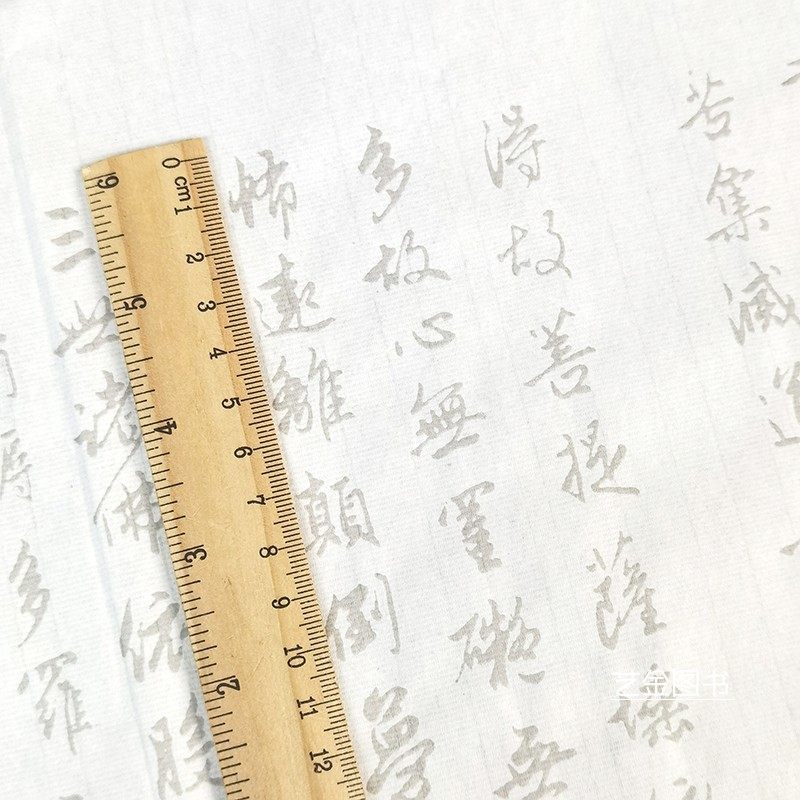 苦集滅道
得故菩提薩
多故心無罣礙無
怖遠離顛倒夢
三世諸佛依般
多羅
0 cm 1 2 3 4 5 6 7 8 9 10 11 12
6 5 4 3 2
艺金图书